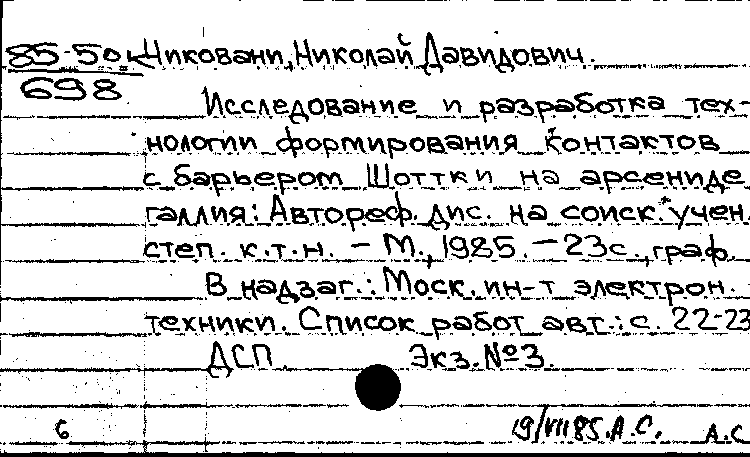 85-50к Чиковани, Николай Давидович.
698
Исследование и разработка тех-
нологии формирования контактов
с барьером Шоттки на арсениде
галлия: Автореф. дис. на соиск. учен.
степ. к.т.н. – М., 1985. – 23с., граф.
В надзаг.: Моск. ин-т электрон.
техники. Список работ авт.: с. 22-23
ДСП. Экз. №3.
6 19/VII 85. А.С. А.С